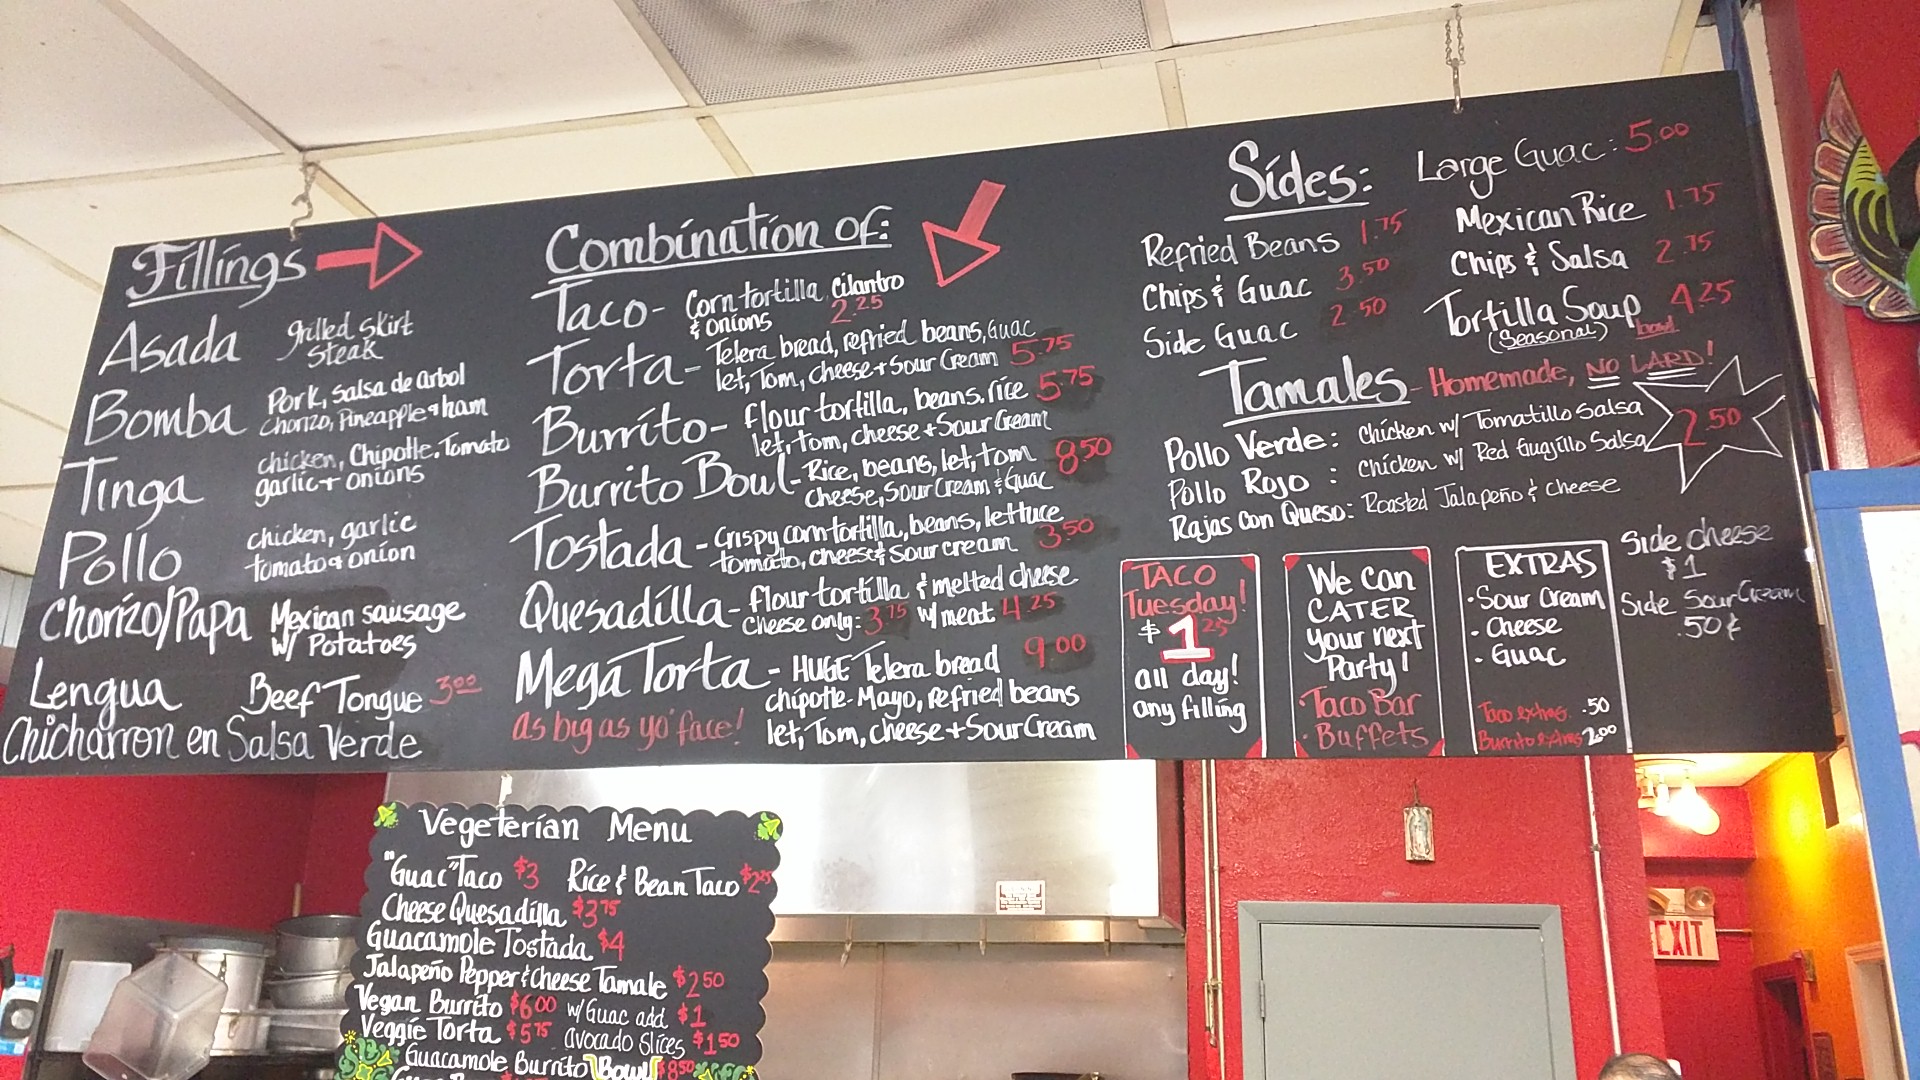 Fillings
Asada grilled skirt
steak
Bomba Pork, salsa de arbol
chorizo, Pineapple & ham
Tinga chicken, Chipotle, Tomato
garlic + onions
Pollo chicken, garlic
tomato & onion
Chorizo/Papa Mexican sausage
w/ Potatoes
Lengua Beef Tongue 3.00
Chicharron en Salsa Verde
Combination of:
Taco- Corn tortilla, Cilantro
& onions 2.25
Torta- Telera bread, refried beans, Guac
let, Tom, cheese + Sour Cream 5.75
Burrito- flour tortilla, beans, rice 5.75
let, tom, cheese + Sour Cream
Burrito Bowl- Rice, beans, let, tom 8.50
cheese, Sour Cream & Guac
Tostada- Crispy corn tortilla, beans, lettuce
tomato, cheese & sour cream 3.50
Quesadilla- flour tortilla & melted cheese
Cheese only: 3.75 w/ meat 4.25
Mega Torta- HUGE Telera bread 9.00
chipotle-Mayo, refried beans
as big as yo' face! let, Tom, cheese + Sour Cream
Sides:
Refried Beans 1.75
Chips & Guac 3.50
Side Guac 2.50
Large Guac: 5.00
Mexican Rice 1.75
Chips & Salsa 2.75
Tortilla Soup 4.25
(Seasonal) bowl
Tamales - Homemade, NO LARD!
Pollo Verde: Chicken w/ Tomatillo Salsa
Pollo Rojo : Chicken w/ Red Guajillo Salsa
Rajas con Queso: Roasted Jalapeño & cheese
2.50
TACO
Tuesday!
$1.25
all day!
any filling
We Can
CATER
your next
Party!
• Taco Bar
• Buffets
EXTRAS
• Sour Cream
• Cheese
• Guac
Taco extras .50
Burrito extras 2.00
Side cheese
$1
Side Sour Cream
.50¢
Vegeterian Menu
"Guac" Taco $3 Rice & Bean Taco $2.25
Cheese Quesadilla $3.75
Guacamole Tostada $4
Jalapeño Pepper & Cheese Tamale $2.50
Vegan Burrito $6.00 w/ Guac add $1
Veggie Torta $5.75 avocado slices $1.50
Guacamole Burrito Bowl $8.50
EXIT